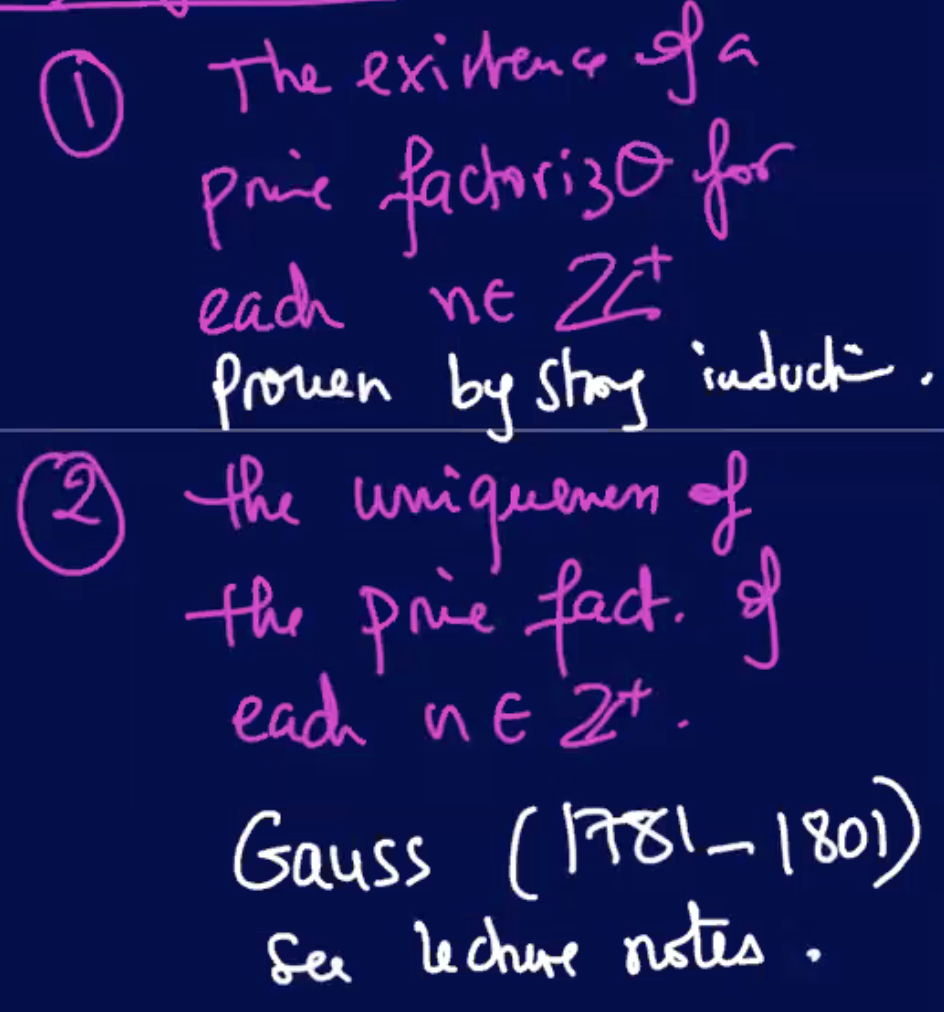 ① The existence of a
prime factorizθ for
each n∈ ℤ⁺
proven by strong inducti.
② the uniqueness of
the prime fact. of
each n ∈ ℤ⁺.
Gauss (1781-1801)
See lecture notes.